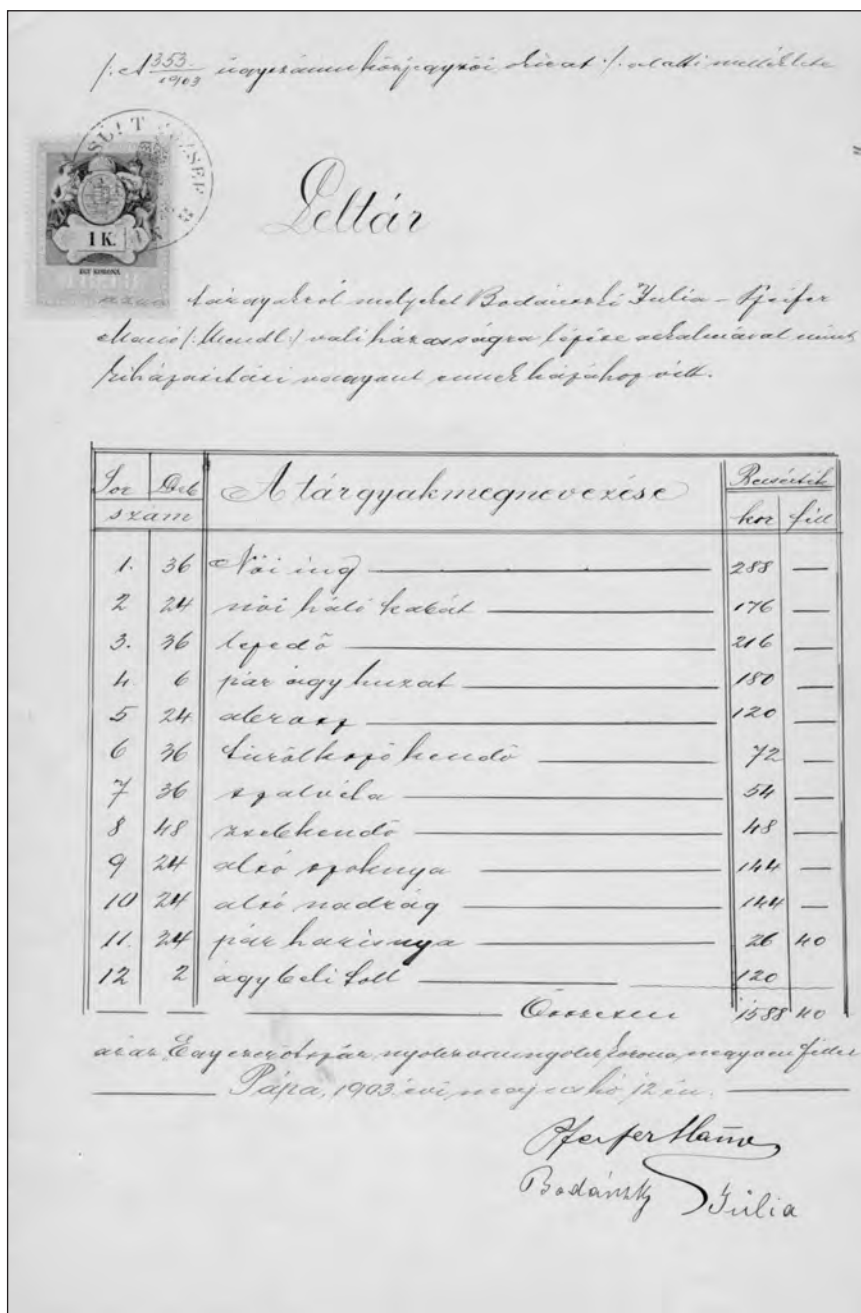 /. A 353./1903 ügyszámu közjegyzői okirat ./. alatti melléklete
SÜLT JÓZSEF
1 K.
EGY KORONA
Leltár
azon tárgyakról melyeket Bodánszki Julia – Pfeifer
Manó /. Mendl ./ vali házasságra lépése alkalmával mint
kiházasitási vagyont ennek házához vitt.
Sor Drb A tárgyak megnevezése Becsérték
szám kor fill
1. 36 Női ing — 288 —
2 24 női háló kabát — 176 —
3. 36 lepedő — 216 —
4. 6 pár ágy huzat — 180 —
5 24 abrosz — 120 —
6 36 türölköző kendő — 72 —
7 36 szalvéla — 54 —
8 48 zsebkendő — 48 —
9 24 alsó szoknya — 144 —
10 24 alsó nadrág — 144 —
11. 24 pár harisnya — 26 40
12 2 ágybeli toll — 120
Összesen 1588 40
azaz Egyezerötszáz nyolczvannyolcz korona negyven fillér
Pápa, 1903. évi május hó 12 én.
Pfeifer Manó
Bodánszky Júlia